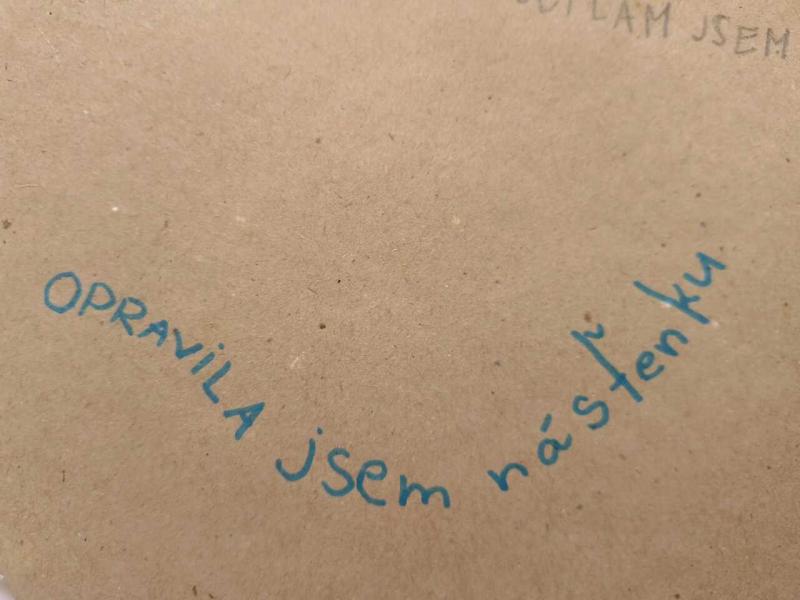 JSEM
OPRAViLA jsem násťenku